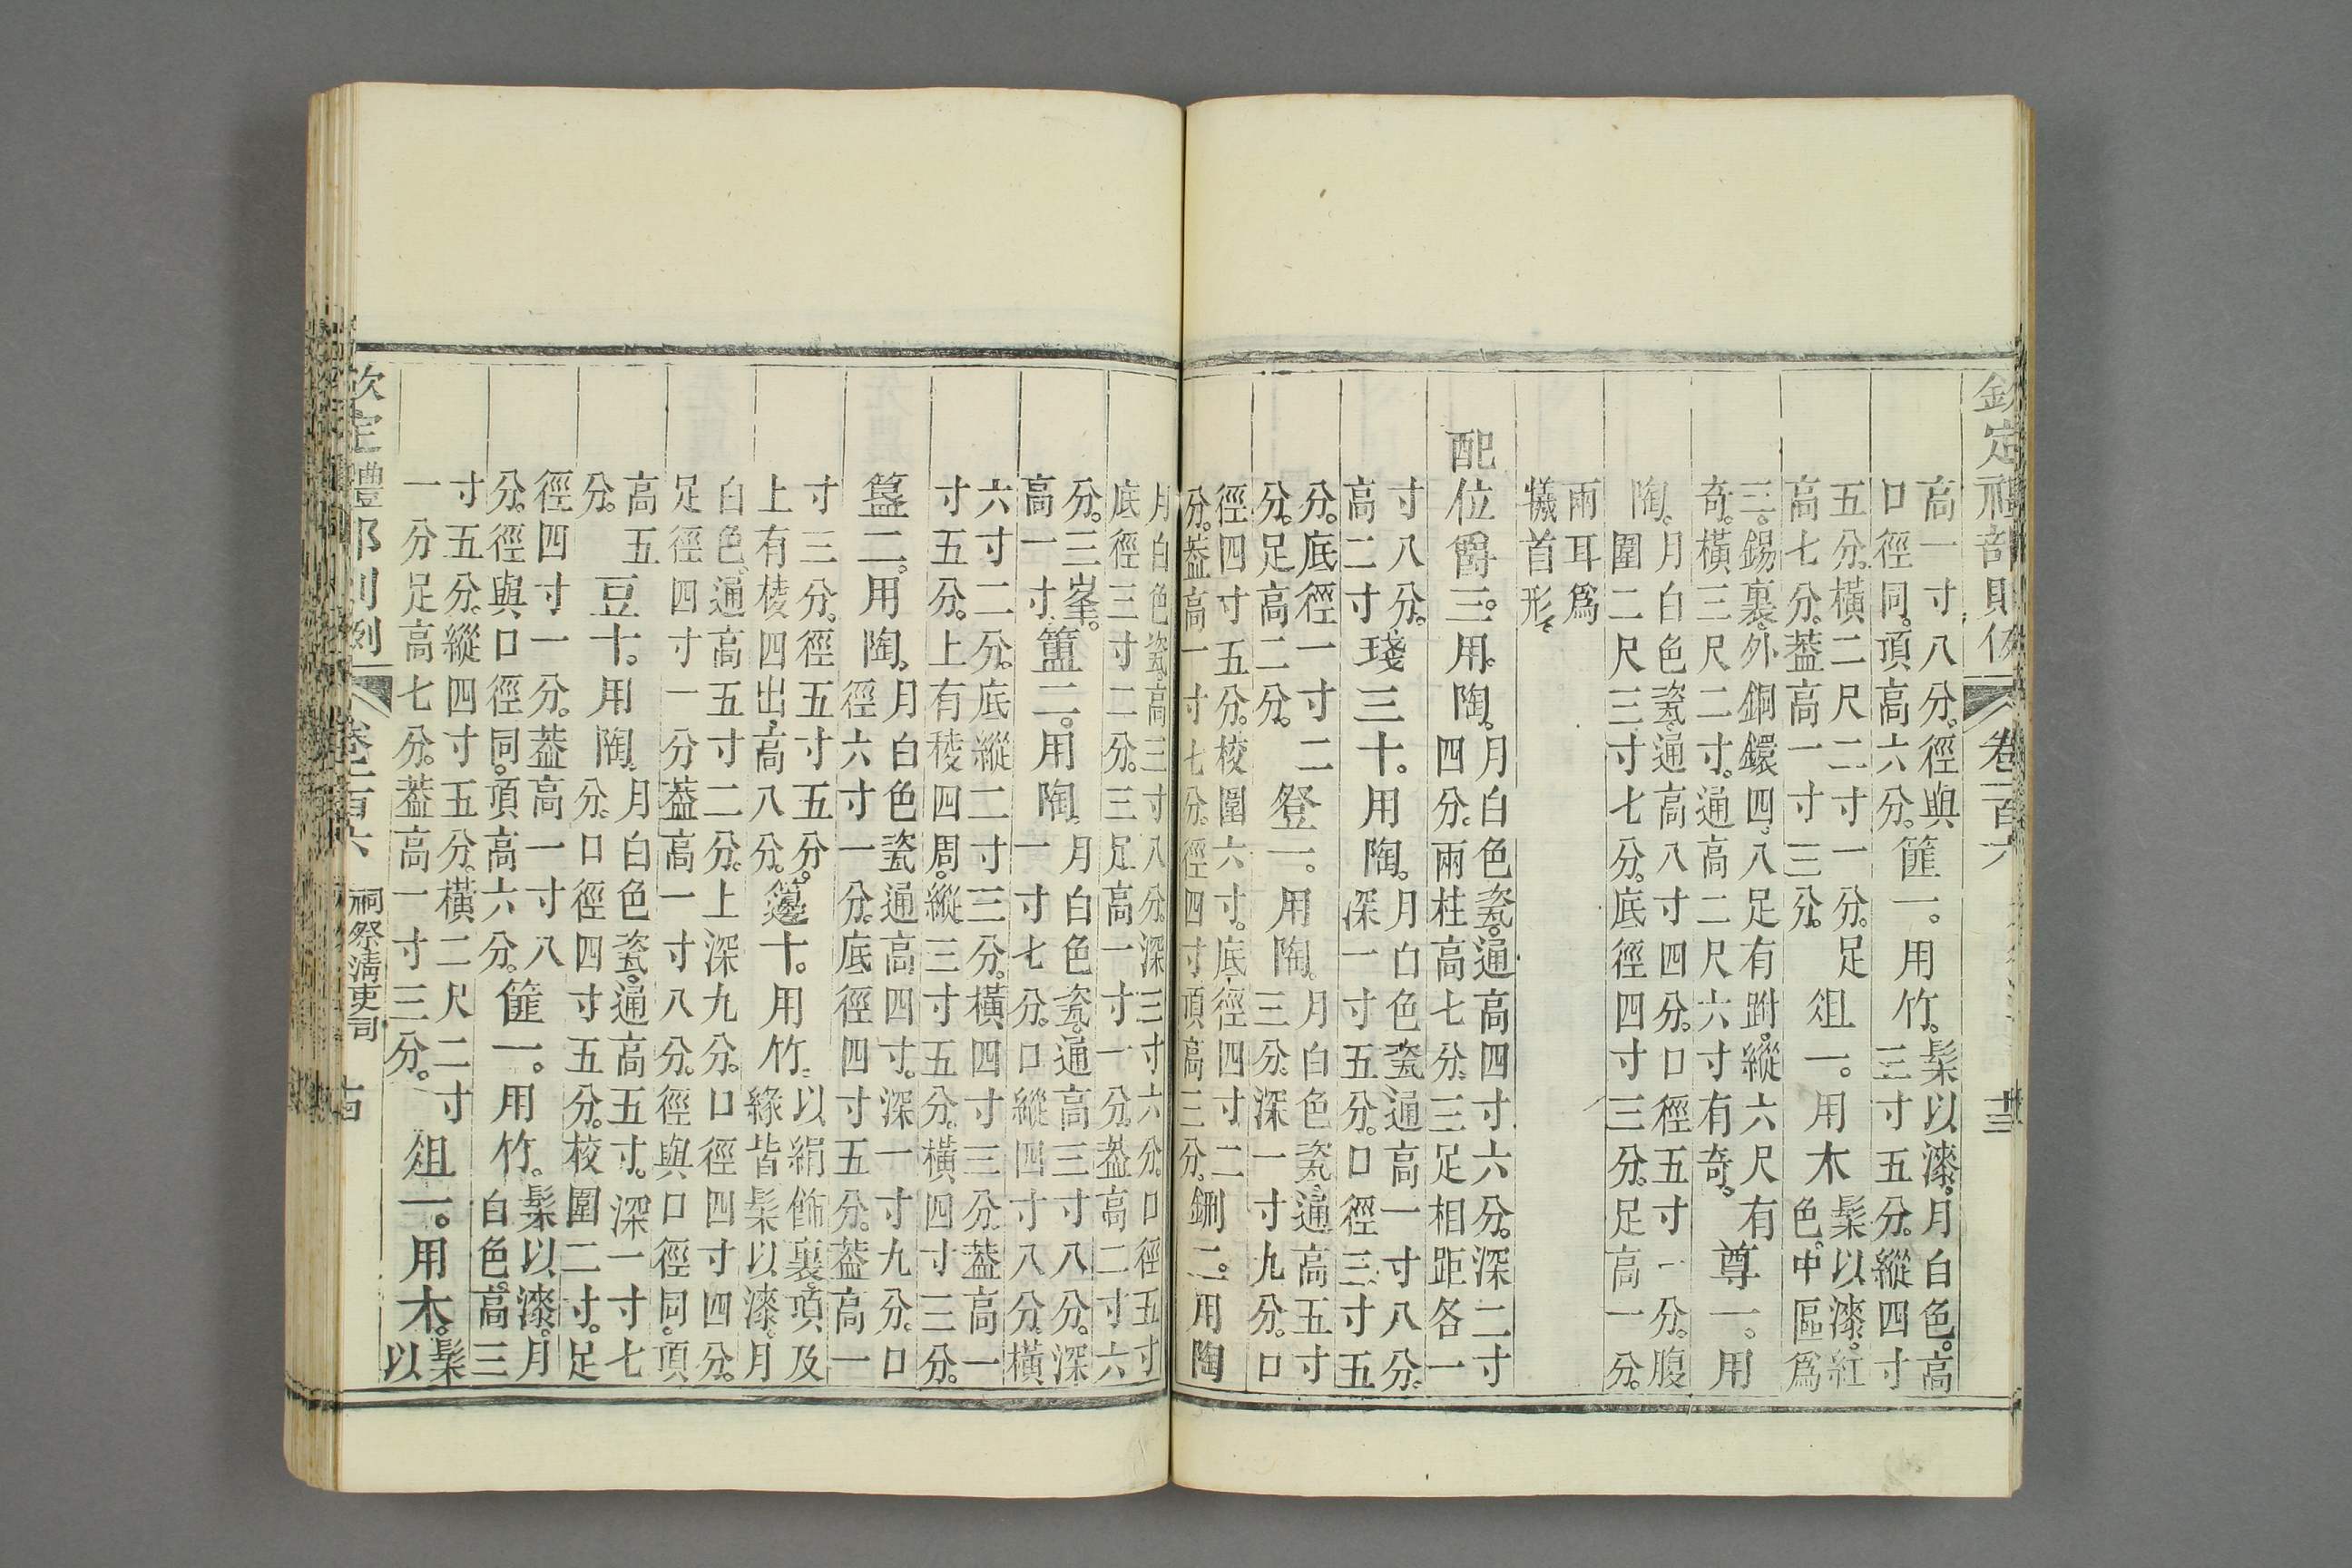 欽定禮部則例 卷一百六 十三
高一寸八分。徑與
口徑同。頂高六分。
篚一。用竹。
髤以漆。月白色。高
三寸五分。縱四寸
五分。橫二尺二寸一分。足
高七分。蓋高一寸三分。
俎一。用木
髤以漆。紅
色。中區爲
三。錫裏。外銅鐶四。八足有跗。縱六尺有
奇。橫三尺二寸。通高二尺六寸有奇。
尊一。用
陶。
月白色瓷。通高八寸四分。口徑五寸一分。腹
圍二尺三寸七分。底徑四寸三分。足高一分。
兩耳爲
犧首形。
配位爵三。用陶。
月白色瓷。通高四寸六分。深二寸
四分。兩柱高七分。三足相距各一
寸八分。
高二寸
琖三十。用陶。
月白色瓷。通高一寸八分。
深一寸五分。口徑三寸五
分。底徑一寸二
分。足高二分。
登一。用陶。
月白色瓷。通高五寸
三分。深一寸九分。口
徑四寸五分。校圍六寸。底徑四寸二
分。蓋高一寸七分。徑四寸。頂高三分。
鉶二。用陶
月白色瓷。高三寸八分。深三寸六分。口徑五寸
底徑三寸二分。三足高一寸一分。蓋高二寸六
分。三峯。
高一寸。
簠二。用陶。
月白色瓷。通高三寸八分。深
一寸七分。口縱四寸八分。橫
六寸二分。底縱二寸三分。橫四寸三分。蓋高一
寸五分。上有稜四周。縱三寸五分。橫四寸三分。
簋二。用陶。
月白色瓷。通高四寸。深一寸九分。口
徑六寸一分。底徑四寸五分。蓋高一
寸三分。徑五寸五分。
上有棱四出。高八分。
籩十。用竹。
以絹飾裏。頂及
緣皆髤以漆。月
白色。通高五寸二分。上深九分。口徑四寸四分。
足徑四寸一分。蓋高一寸八分。徑與口徑同。頂
高五
分。
豆十。用陶。
月白色瓷。通高五寸。深一寸七
分。口徑四寸五分。校圍二寸。足
徑四寸一分。蓋高一寸八
分。徑與口徑同。頂高六分。
篚一。用竹。
髤以漆。月
白色。高三
寸五分。縱四寸五分。橫二尺二寸
一分。足高七分。蓋高一寸三分。
俎一。用木。
髤
以
欽定禮部則例 卷一百六 祠祭淸吏司 十四